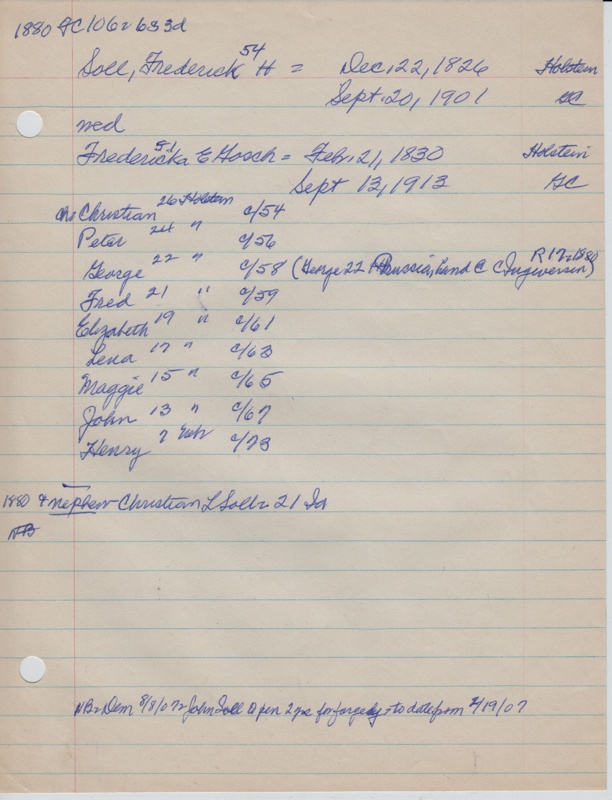 1880 GC 106 = 633d
54
Soll, Frederick H = Dec. 22, 1826 Holstein
Sept. 20, 1901 GC
wed
51
Fredericka E Gosch = Feb. 21, 1830 Holstein
Sept 13, 1913 GC
Ch: Christian 26 Holstein c/54
Peter 24 " c/56
R 17 = 1880
George 22 " c/58 (George 22 Prussia, hand C C Ingwersen)
Fred 21 " c/59
Elizabeth 19 " c/61
Lena 17 " c/63
Maggie 15 " c/65
John 13 " c/67
Henry 7 c/73
1880 & nephew Christian L Soll = 21 Ia
NB
NB = Dem 8/8/07 = John Soll pen 2 yrs for forgedy = to date from 2/19/07